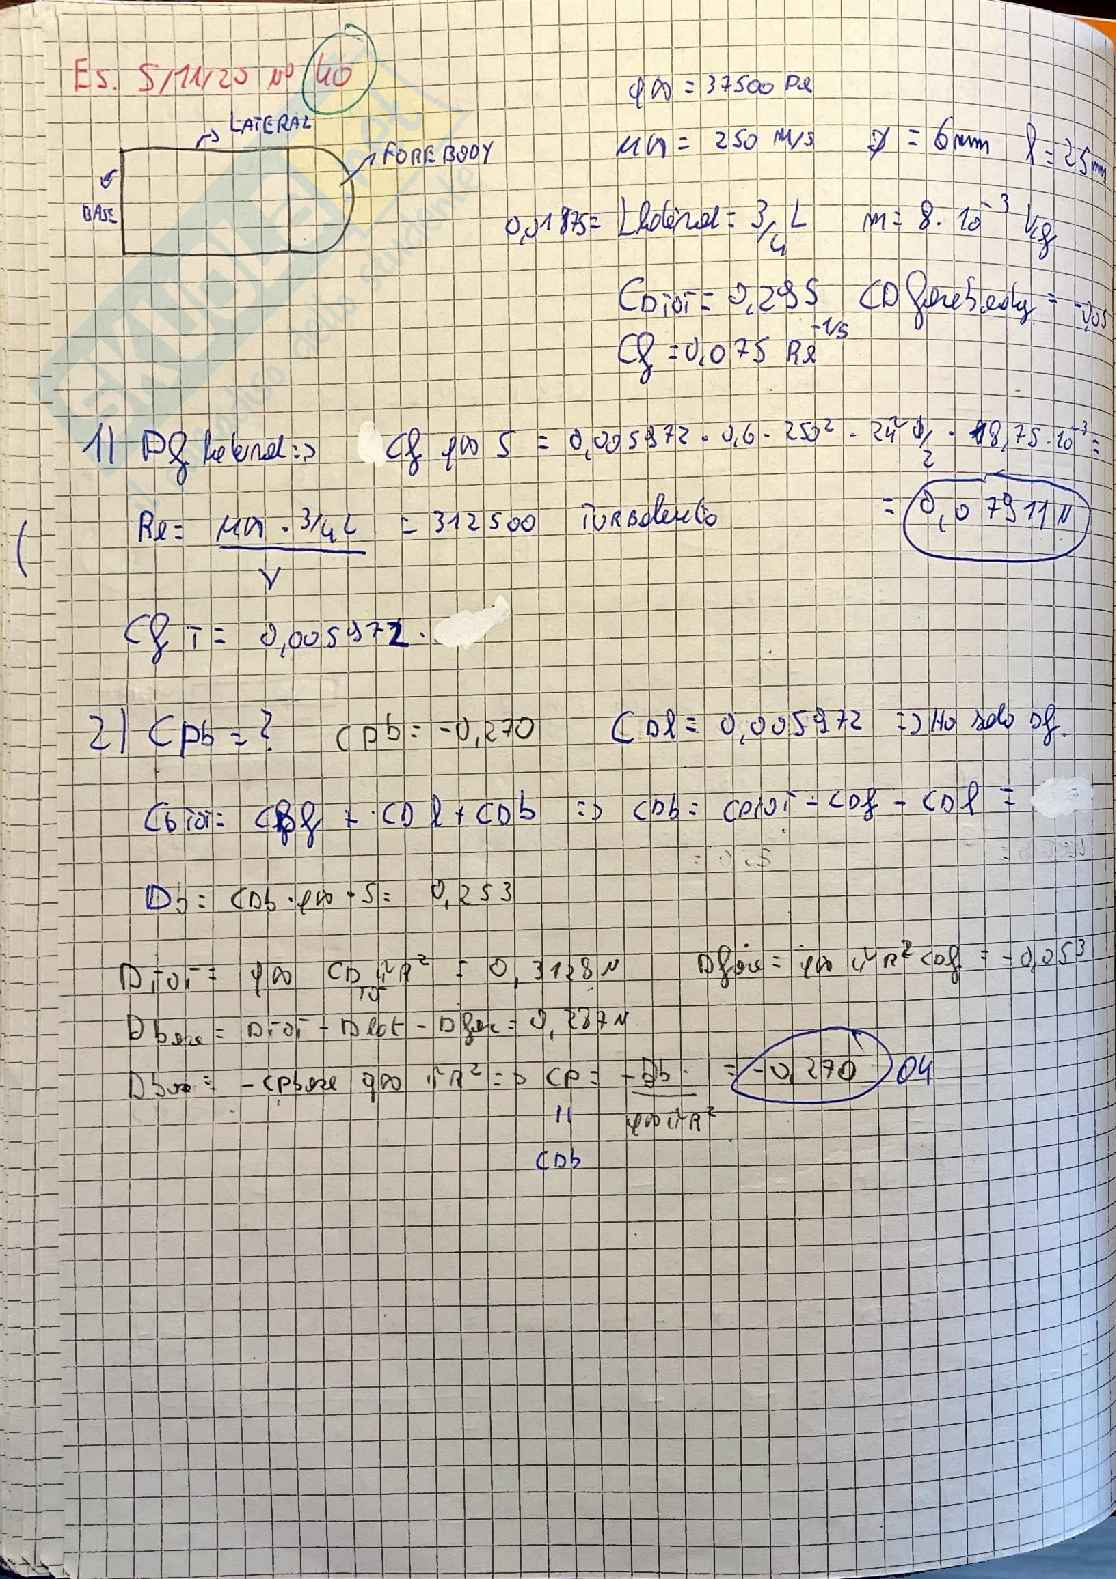 Es. 5/11/20 no 40
q∞ = 37500 Pa
LATERAL
FOREBODY
BASE
u∞ = 250 m/s ∅ = 6mm l = 25mm
0,01875 = Llateral = 3/4 L m = 8·10^-3 kg
CDTOT = 0,295 CDforebody = -0,05
Cf = 0,075 Re^-1/5
1) Df lateral => Cf q∞ S = 0,005972 · 0,6 · 250² · 2π ∅/2 · 18,75·10^-3 =
Re = u∞ · 3/4 L / ν = 312500 TURBOLENTO = 0,07911 N
Cf T = 0,005972 ·
2) Cpb = ? Cpb = -0,270 CDl = 0,005972 => Ho solo Df.
CDTOT = CDf + CDl + CDb => CDb = CDTOT - CDf - CDl =
Db = CDb · q∞ · S = 0,253
DTOT = q∞ CDTOT πR² = 0,3128 N Dfore = q∞ πR² CDf = -0,053
Dbase = DTOT - Dlat - Dfore = 0,287 N
Dbase = -Cpbase q∞ πR² => CP = -Db / q∞πR² = -0,270 OK
CDb